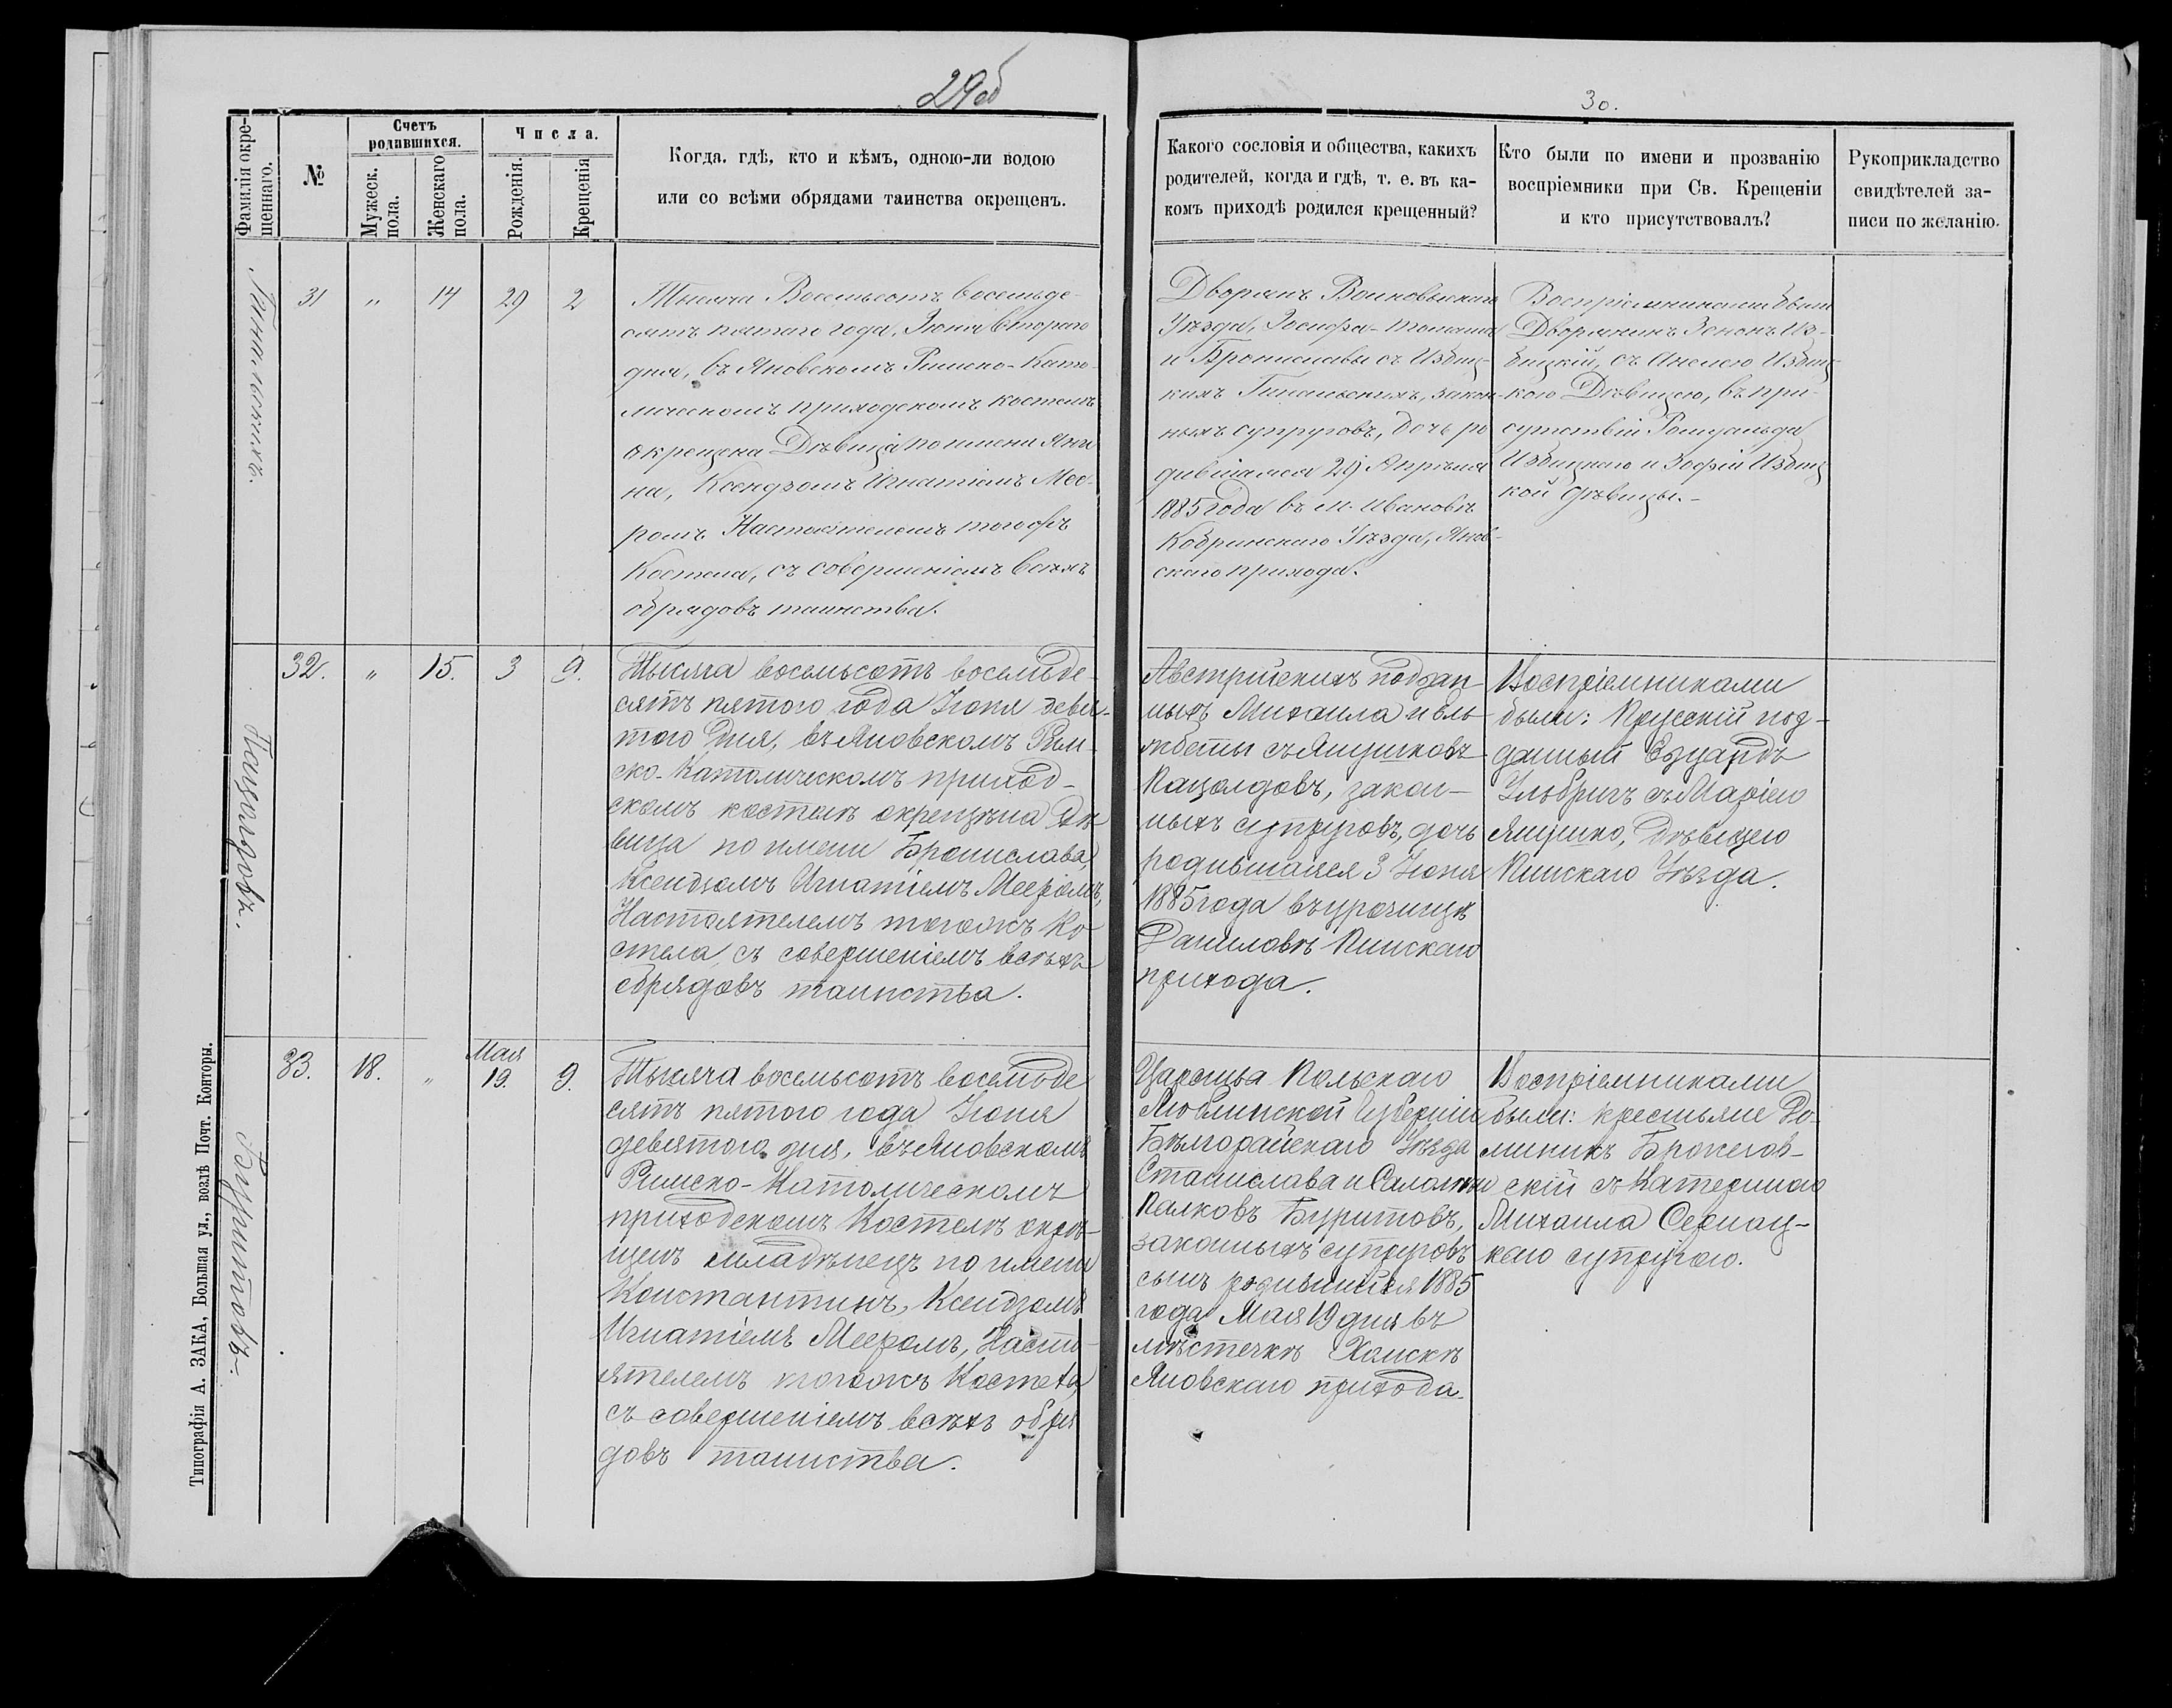 29об
30.
Фамилія окре-
щеннаго.
№
Счетъ
родившихся.
Мужеск.
пола.
Женскаго
пола.
Числа.
Рожденія.
Крещенія
Когда, гдѣ, кто и кѣмъ, одною-ли водою
или со всѣми обрядами таинства окрещенъ.
Какого сословія и общества, какихъ
родителей, когда и гдѣ, т. е. въ ка-
комъ приходѣ родился крещенный?
Кто были по имени и прозванію
воспріемники при Св. Крещеніи
и кто присутствовалъ?
Рукоприкладство
свидѣтелей за-
писи по желанію.
31 " 14 29 2
Тысяча Восемьсотъ восемьде-
сятъ пятаго года, Іюня втораго
дня, въ Яновскомъ Римско-Като-
лическомъ приходскомъ костелѣ
окрещена Дѣвица по имени Яни
на, Ксендзомъ Игнатіемъ Мее-
ромъ Настоятелемъ того жъ
Костела, съ совершеніемъ всѣхъ
обрядовъ таинства.
Дворянъ Волковыскаго
Уѣзда, Іосифа-Томаша
и Брониславы съ Избиц-
кихъ закон-
ныхъ супруговъ, дочь ро
дившаяся 29 Апрѣля
1885 года въ м. Ивановѣ
Кобринскаго Уѣзда, Янов-
скаго прихода.
Воспріемниками были
Дворянинъ Зенонъ Из-
бицкій, съ Анелею Избиц-
кою Дѣвицею, въ при-
сутствіи Ромуальда
Избицкаго и Зофіи Избиц
кой дѣвицы.-
Пацолдовъ.
32. " 15. 3 9.
Тысяча восемьсотъ восемьде-
сятъ пятого года Іюня девя-
того дня, въ Яновскомъ Рим-
ско-Католическомъ приход-
скомъ костелѣ окрещена Дѣ
вица по имени Бронислава,
Ксендзомъ Игнатіемъ Мееромъ,
Настоятелемъ тогожъ Ко
стела, съ совершеніемъ всѣхъ
обрядовъ таинства.
Австрійскихъ поддан-
ныхъ Михаила и Ель-
жбеты съ Янушковъ
Пацолдовъ, закон-
ныхъ супруговъ, дочь
родившаяся 3 Іюня
1885 года въ урочищѣ
Даниловѣ Пинскаго
прихода.
Воспріемниками
были: Прусскій под-
данный Едуардъ
Ульбрихъ съ Маріею
Янушко, Дѣвицею
Пинскаго Уѣзда.
Буритовъ.
33. 18. " Мая 19. 9.
Тысяча восемьсотъ восемьде
сятъ пятого года Іюня
девятого дня, въ Яновскомъ
Римско-Католическомъ
приходскомъ Костелѣ окре-
щенъ младѣнецъ по имени
Константинъ, Ксендзомъ
Игнатіемъ Мееромъ, Насто-
ятелемъ тогожъ Костела,
съ совершеніемъ всѣхъ обря
довъ таинства.
Царства Польскаго
Люблинской Губерніи
Бѣлгорайскаго Уѣзда
Станислава и Саломеи
Палковъ Буритовъ,
законныхъ супруговъ
сынъ родившійся 1885
года Мая 19 дня въ
мѣстечкѣ Хомскѣ
Яновскаго прихода.
Воспріемниками
были: крестьяне До-
миникъ
скій съ Катериною
Михаила
каго супругою.
Типографія А. ЗАКА, Большая ул., возлѣ Почт. Конторы.